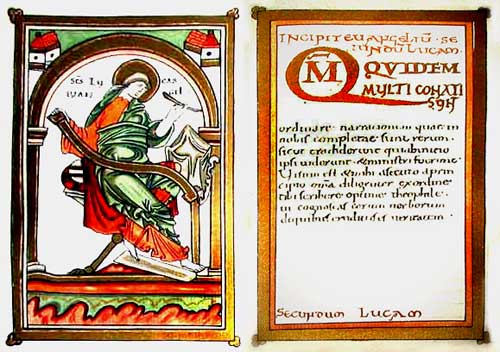 SCS LV CAS
INCIPIT EVANGELIŪ SE
CUNDŪ LUCAM
QM̄ QVIDEM
MVLTI CONATI
ordinare narrationem quae in
nobis completae sunt rerum
sicut tradiderunt qui abinitio
ipsi viderunt & ministri fuerunt
Visum est & mihi assecuto aprin
cipio omīa diligenter exordine
tibi scribere optime theophile
cognoscas eorum verborum
dequibus eruditus es veritatem
SECUNDUM LUCAM